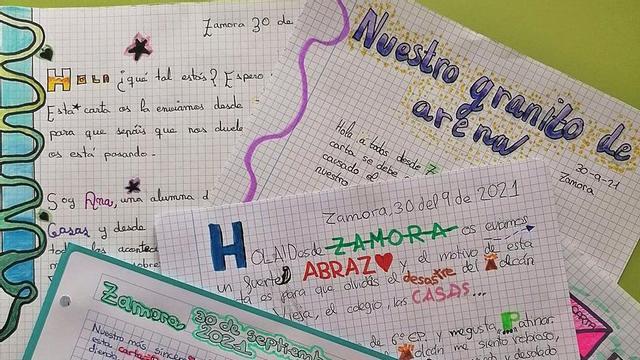 Zamora 30 de
HOLA ¿qué tal estás? Espero
Esta carta os la enviamos desde
para que sepáis que nos duele
os está pasando.
Soy Ana, una alumna d
Casas y desde
Nuestro granito de
arena
30-9-21
Zamora
Hola a todos desde Z
carta se debe
causado el
nuestro
Zamora, 30 del 9 de 2021
HOLA! Desde ZAMORA os enviamos
un fuerte ABRAZ y el motivo de esta
es para que olvidéis el desastre del
Vieja, el colegio, las CASAS...
de 6º EP y me gusta Patinar.
me siento rabioso,
y desolado
Zamora, 30 de septiemb
2021
Nuestro más sincer
esta carta